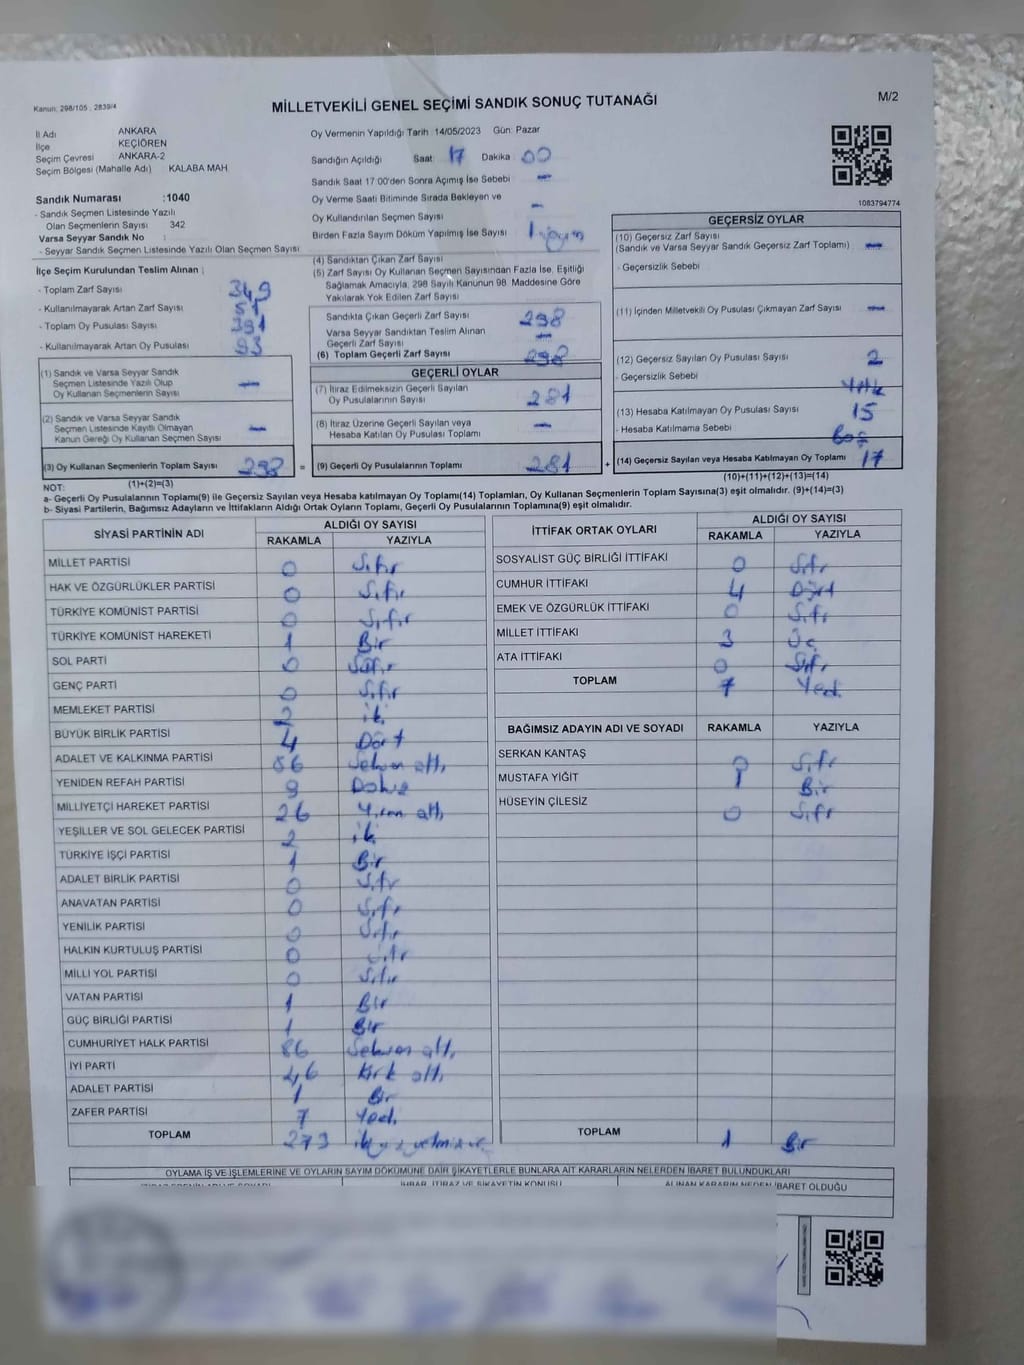 Kanun: 298/105 , 2839/4
MİLLETVEKİLİ GENEL SEÇİMİ SANDIK SONUÇ TUTANAĞI
M/2
İl Adı ANKARA
İlçe KEÇİÖREN
Seçim Çevresi ANKARA-2
Seçim Bölgesi (Mahalle Adı) KALABA MAH
Oy Vermenin Yapıldığı Tarih 14/05/2023 Gün: Pazar
Sandığın Açıldığı Saat 17 Dakika 00
Sandık Saat 17:00'den Sonra Açımış İse Sebebi —
Oy Verme Saati Bitiminde Sırada Bekleyen ve
Oy Kullandırılan Seçmen Sayısı —
Birden Fazla Sayım Döküm Yapılmış İse Sayısı 1
Sandık Numarası :1040
- Sandık Seçmen Listesinde Yazılı
Olan Seçmenlerin Sayısı 342
Varsa Seyyar Sandık No :
- Seyyar Sandık Seçmen Listesinde Yazılı Olan Seçmen Sayısı
İlçe Seçim Kurulundan Teslim Alınan ;
- Toplam Zarf Sayısı 349
- Kullanılmayarak Artan Zarf Sayısı 51
- Toplam Oy Pusulası Sayısı 391
- Kullanılmayarak Artan Oy Pusulası 93
(1) Sandık ve Varsa Seyyar Sandık
Seçmen Listesinde Yazılı Olup
Oy Kullanan Seçmenlerin Sayısı —
(2) Sandık ve Varsa Seyyar Sandık
Seçmen Listesinde Kayıtlı Olmayan
Kanun Gereği Oy Kullanan Seçmen Sayısı —
(3) Oy Kullanan Seçmenlerin Toplam Sayısı 298 =
(1)+(2)=(3)
(4) Sandıktan Çıkan Zarf Sayısı
(5) Zarf Sayısı Oy Kullanan Seçmen Sayısından Fazla İse, Eşitliği
Sağlamak Amacıyla, 298 Sayılı Kanunun 98. Maddesine Göre
Yakılarak Yok Edilen Zarf Sayısı
Sandıkta Çıkan Geçerli Zarf Sayısı 298
Varsa Seyyar Sandıktan Teslim Alınan
Geçerli Zarf Sayısı —
(6) Toplam Geçerli Zarf Sayısı 298
GEÇERLİ OYLAR
(7) İtiraz Edilmeksizin Geçerli Sayılan
Oy Pusulalarının Sayısı 281
(8) İtiraz Üzerine Geçerli Sayılan veya
Hesaba Katılan Oy Pusulası Toplamı —
(9) Geçerli Oy Pusulalarının Toplamı 281 +
1083794774
GEÇERSİZ OYLAR
(10) Geçersiz Zarf Sayısı
(Sandık ve Varsa Seyyar Sandık Geçersiz Zarf Toplamı) —
- Geçersizlik Sebebi
(11) İçinden Milletvekili Oy Pusulası Çıkmayan Zarf Sayısı —
(12) Geçersiz Sayılan Oy Pusulası Sayısı 2
- Geçersizlik Sebebi
(13) Hesaba Katılmayan Oy Pusulası Sayısı 15
- Hesaba Katılmama Sebebi boş
(14) Geçersiz Sayılan veya Hesaba Katılmayan Oy Toplamı 17
(10)+(11)+(12)+(13)=(14)
NOT:
a- Geçerli Oy Pusulalarının Toplamı(9) ile Geçersiz Sayılan veya Hesaba katılmayan Oy Toplamı(14) Toplamları, Oy Kullanan Seçmenlerin Toplam Sayısına(3) eşit olmalıdır. (9)+(14)=(3)
b- Siyasi Partilerin, Bağımsız Adayların ve İttifakların Aldığı Ortak Oyların Toplamı, Geçerli Oy Pusulalarının Toplamına(9) eşit olmalıdır.
SİYASİ PARTİNİN ADI ALDIĞI OY SAYISI
RAKAMLA YAZIYLA
MİLLET PARTİSİ 0 Sıfır
HAK VE ÖZGÜRLÜKLER PARTİSİ 0 Sıfır
TÜRKİYE KOMÜNİST PARTİSİ 0 Sıfır
TÜRKİYE KOMÜNİST HAREKETİ 1 Bir
SOL PARTİ 0 Sıfır
GENÇ PARTİ 0 Sıfır
MEMLEKET PARTİSİ 2 iki
BÜYÜK BİRLİK PARTİSİ 4 Dört
ADALET VE KALKINMA PARTİSİ 86 Seksen altı
YENİDEN REFAH PARTİSİ 9 Dokuz
MİLLİYETÇİ HAREKET PARTİSİ 26 Yirmi altı
YEŞİLLER VE SOL GELECEK PARTİSİ 2 iki
TÜRKİYE İŞÇİ PARTİSİ 1 Bir
ADALET BİRLİK PARTİSİ 0 Sıfır
ANAVATAN PARTİSİ 0 Sıfır
YENİLİK PARTİSİ 0 Sıfır
HALKIN KURTULUŞ PARTİSİ 0 Sıfır
MİLLİ YOL PARTİSİ 0 Sıfır
VATAN PARTİSİ 1 Bir
GÜÇ BİRLİĞİ PARTİSİ 1 Bir
CUMHURİYET HALK PARTİSİ 86 Seksen altı
İYİ PARTİ 46 Kırk altı
ADALET PARTİSİ 1 Bir
ZAFER PARTİSİ 7 Yedi
TOPLAM 273
İTTİFAK ORTAK OYLARI ALDIĞI OY SAYISI
RAKAMLA YAZIYLA
SOSYALİST GÜÇ BİRLİĞİ İTTİFAKI 0 Sıfır
CUMHUR İTTİFAKI 4 Dört
EMEK VE ÖZGÜRLÜK İTTİFAKI 0 Sıfır
MİLLET İTTİFAKI 3 Üç
ATA İTTİFAKI 0 Sıfır
TOPLAM 7 Yedi
BAĞIMSIZ ADAYIN ADI VE SOYADI RAKAMLA YAZIYLA
SERKAN KANTAŞ 0 Sıfır
MUSTAFA YİĞİT 1 Bir
HÜSEYİN ÇİLESİZ 0 Sıfır
TOPLAM 1 Bir
OYLAMA İŞ VE İŞLEMLERİNE VE OYLARIN SAYIM DÖKÜMÜNE DAİR ŞİKAYETLERLE BUNLARA AİT KARARLARIN NELERDEN İBARET BULUNDUKLARI
İHBAR, İTİRAZ VE ŞİKAYETİN KONUSU ALINAN KARARIN NEDEN İBARET OLDUĞU